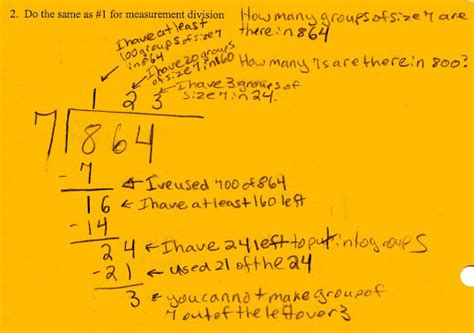 2. Do the same as #1 for measurement division
How many groups of size 7 are
there in 864
I have at least
100 groups of size 7
in 864
I have 20 groups
of size 7 in 160
How many 7s are there in 800?
I have 3 groups of
size 7 in 24.
1 2 3
7 864
-7 I've used 700 of 864
16 I have at least 160 left
-14
24 I have 24 left to put into groups
-21 used 21 of the 24
3 you cannot make group of
7 out of the leftover 3